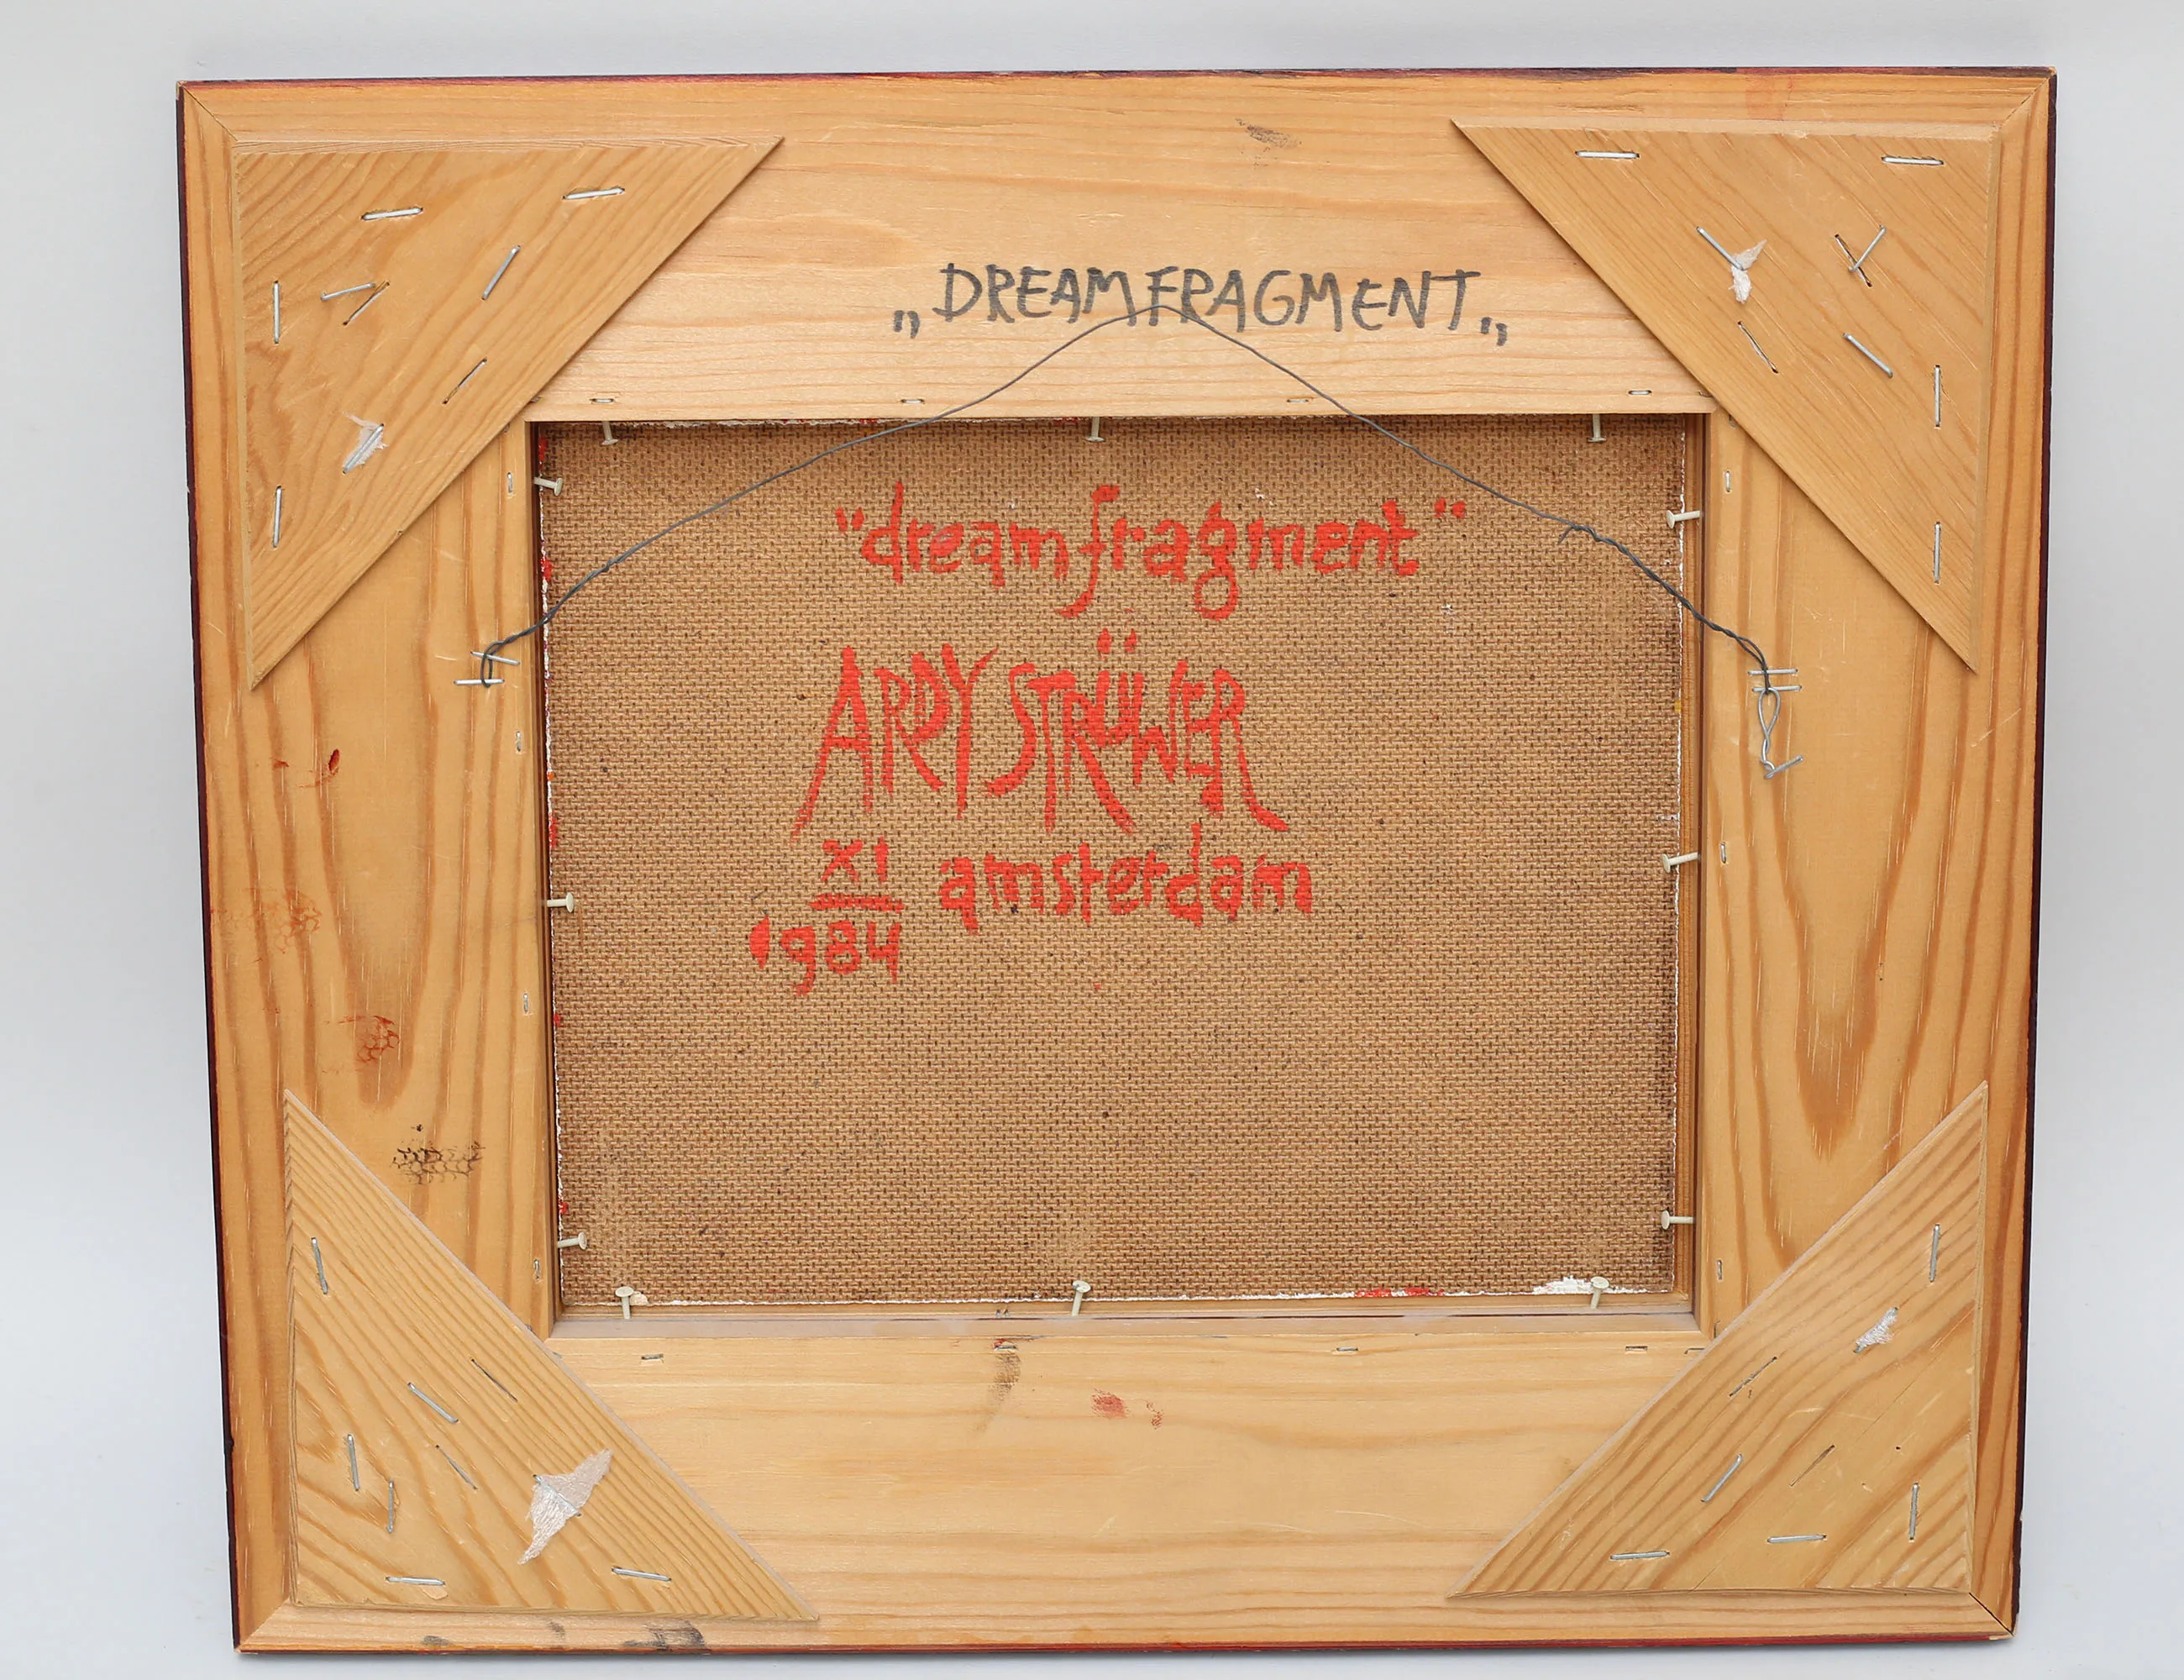 „DREAMFRAGMENT„
"dreamfragment"
ARDY STRÜWER
XI amsterdam
1984